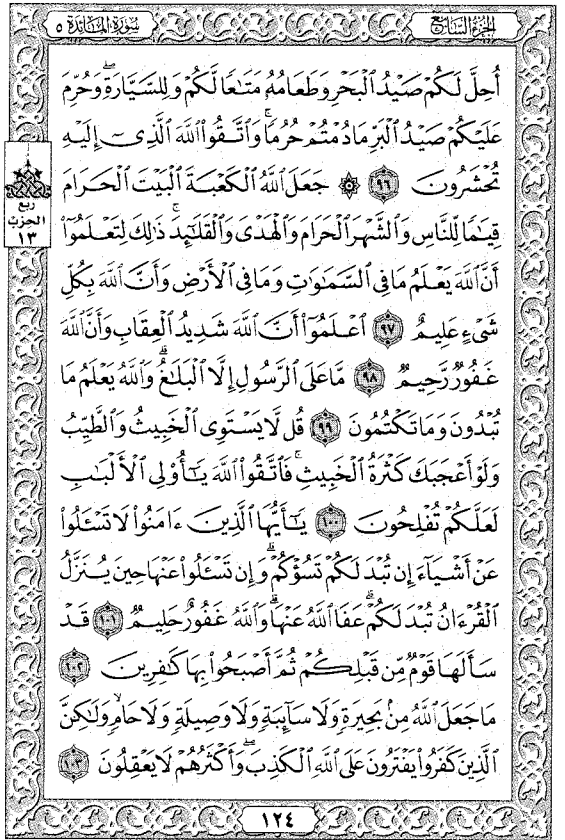 الجزء السابع
سورة المائدة ٥
أُحِلَّ لَكُمْ صَيْدُ ٱلْبَحْرِ وَطَعَامُهُۥ مَتَٰعًا لَّكُمْ وَلِلسَّيَّارَةِۖ وَحُرِّمَ
عَلَيْكُمْ صَيْدُ ٱلْبَرِّ مَادُمْتُمْ حُرُمًاۗ وَٱتَّقُوا۟ ٱللَّهَ ٱلَّذِىٓ إِلَيْهِ
تُحْشَرُونَ ٩٦ ۞ جَعَلَ ٱللَّهُ ٱلْكَعْبَةَ ٱلْبَيْتَ ٱلْحَرَامَ
قِيَٰمًا لِّلنَّاسِ وَٱلشَّهْرَ ٱلْحَرَامَ وَٱلْهَدْىَ وَٱلْقَلَٰٓئِدَۚ ذَٰلِكَ لِتَعْلَمُوٓا۟
أَنَّ ٱللَّهَ يَعْلَمُ مَا فِى ٱلسَّمَٰوَٰتِ وَمَا فِى ٱلْأَرْضِ وَأَنَّ ٱللَّهَ بِكُلِّ
شَىْءٍ عَلِيمٌ ٩٧ ٱعْلَمُوٓا۟ أَنَّ ٱللَّهَ شَدِيدُ ٱلْعِقَابِ وَأَنَّ ٱللَّهَ
غَفُورٌ رَّحِيمٌ ٩٨ مَّا عَلَى ٱلرَّسُولِ إِلَّا ٱلْبَلَٰغُۗ وَٱللَّهُ يَعْلَمُ مَا
تُبْدُونَ وَمَا تَكْتُمُونَ ٩٩ قُل لَّا يَسْتَوِى ٱلْخَبِيثُ وَٱلطَّيِّبُ
وَلَوْ أَعْجَبَكَ كَثْرَةُ ٱلْخَبِيثِۚ فَٱتَّقُوا۟ ٱللَّهَ يَٰٓأُو۟لِى ٱلْأَلْبَٰبِ
لَعَلَّكُمْ تُفْلِحُونَ ١٠٠ يَٰٓأَيُّهَا ٱلَّذِينَ ءَامَنُوا۟ لَا تَسْـَٔلُوا۟
عَنْ أَشْيَآءَ إِن تُبْدَ لَكُمْ تَسُؤْكُمْۖ وَإِن تَسْـَٔلُوا۟ عَنْهَا حِينَ يُنَزَّلُ
ٱلْقُرْءَانُ تُبْدَ لَكُمْۗ عَفَا ٱللَّهُ عَنْهَاۗ وَٱللَّهُ غَفُورٌ حَلِيمٌ ١٠١ قَدْ
سَأَلَهَا قَوْمٌ مِّن قَبْلِكُمْ ثُمَّ أَصْبَحُوا۟ بِهَا كَٰفِرِينَ ١٠٢
مَا جَعَلَ ٱللَّهُ مِنۢ بَحِيرَةٍ وَلَا سَآئِبَةٍ وَلَا وَصِيلَةٍ وَلَا حَامٍۙ وَلَٰكِنَّ
ٱلَّذِينَ كَفَرُوا۟ يَفْتَرُونَ عَلَى ٱللَّهِ ٱلْكَذِبَۖ وَأَكْثَرُهُمْ لَا يَعْقِلُونَ ١٠٣
ربع
الحزب
١٣
١٢٤